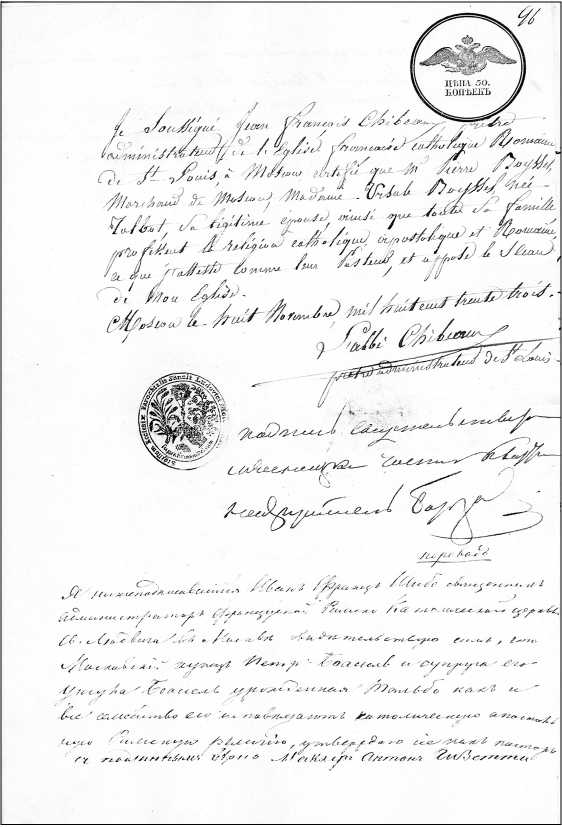 96
ЦѢНА 50.
КОПѢЕКЪ
Je Soussigné, Jean François Chibeaux, prêtre
administrateur de l'Eglise française catholique Romaine
de St Louis, à Moscou certifie que Mr Pierre Boyssel,
Marchand de Moscou, Madame Ursule Boyssel, née
Talbot, Sa légitime épouse, ainsi que toute Sa famille
professent la religion catholique, apostolique et Romaine,
ce que j'atteste comme leur Pasteur, et appose le Sceau
de Mon Eglise.
Moscou le huit Novembre, mil huit cent trente trois.
L'abbé Chibeaux
prêtre administrateur de St Louis
Sigillum Ecclesiae Parochialis Sancti Ludovici
подпись свидетельствую
мясницкой части
надзиратель
переводъ
Я нижеподписавшійся Иванъ Францъ Шибо священникъ
администраторъ Французской Римско Католической церкви
Св. Людвига въ Москвѣ свидетельствую симъ, что
Московскій купецъ Петръ Боасель и супруга его
Урсула Боасель урожденная Тальбо какъ и
все семейство его исповедуютъ католическую апостоль
скую Римскую религію, утверждаю сіе какъ пасторъ
съ подлиннымъ верно Маклеръ Антонъ